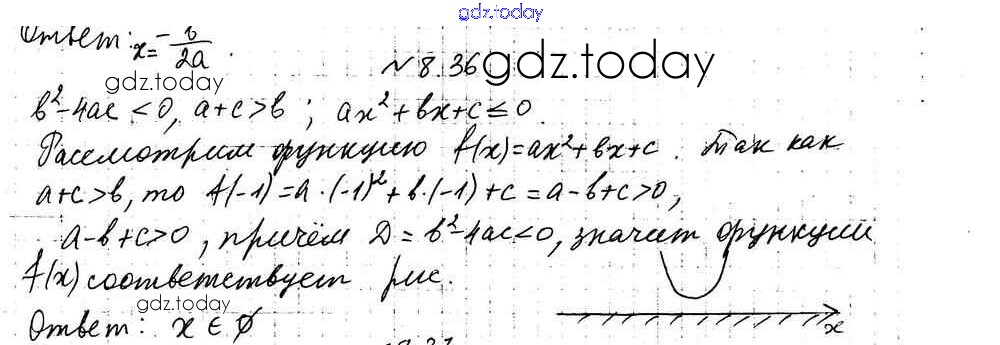 gdz.today
Ответ: x = -b/2a.
№ 8.36 gdz.today
gdz.today
b²-4ac < 0, a+c>b ; ax²+bx+c ≤ 0.
Рассмотрим функцию f(x)=ax²+bx+c. Так как
a+c>b, то f(-1)=a·(-1)²+b·(-1)+c=a-b+c>0,
a-b+c>0, причём D=b²-4ac<0, значит функции
f(x) соответствует рис.
gdz.today
Ответ: x ∈ ∅
x